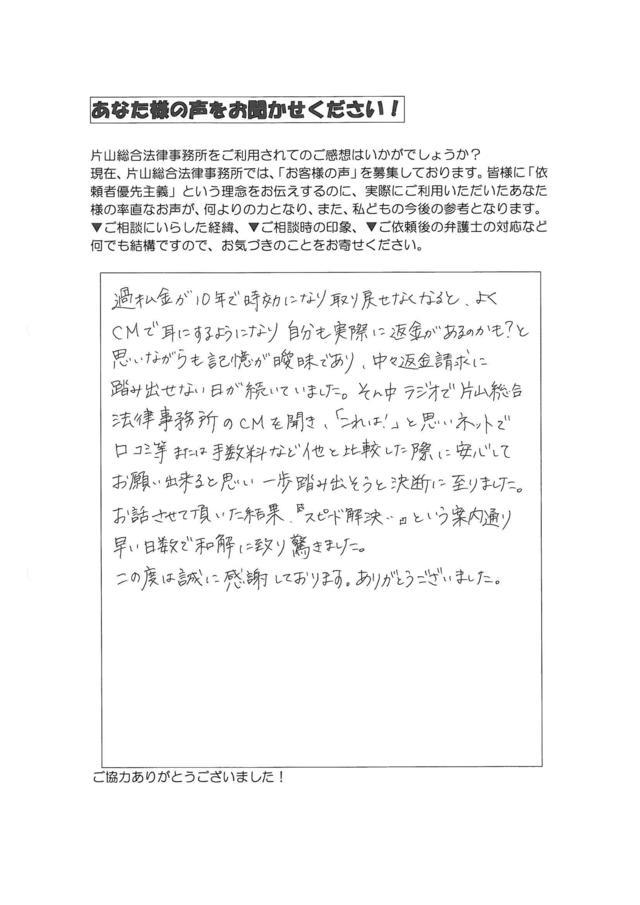 あなた様の声をお聞かせください！
片山総合法律事務所をご利用されてのご感想はいかがでしょうか？
現在、片山総合法律事務所では、「お客様の声」を募集しております。皆様に「依
頼者優先主義」という理念をお伝えするのに、実際にご利用いただいたあなた
様の率直なお声が、何よりの力となり、また、私どもの今後の参考となります。
▼ご相談にいらした経緯、▼ご相談時の印象、▼ご依頼後の弁護士の対応など
何でも結構ですので、お気づきのことをお寄せください。
過払金が10年で時効になり取り戻せなくなると、よく
CMで耳にするようになり自分も実際に返金があるのかも?と
思いながらも記憶が曖昧であり、中々返金請求に
踏み出せない日が続いていました。そん中ラジオで片山総合
法律事務所のCMを聞き、「これは!」と思いネットで
口コミ等または手数料など他と比較した際に安心して
お願い出来ると思い一歩踏み出そうと決断に至りました。
お話させて頂いた結果、『スピード解決‥』という案内通り
早い日数で和解に致り驚きました。
この度は誠に感謝しております。ありがとうございました。
ご協力ありがとうございました！